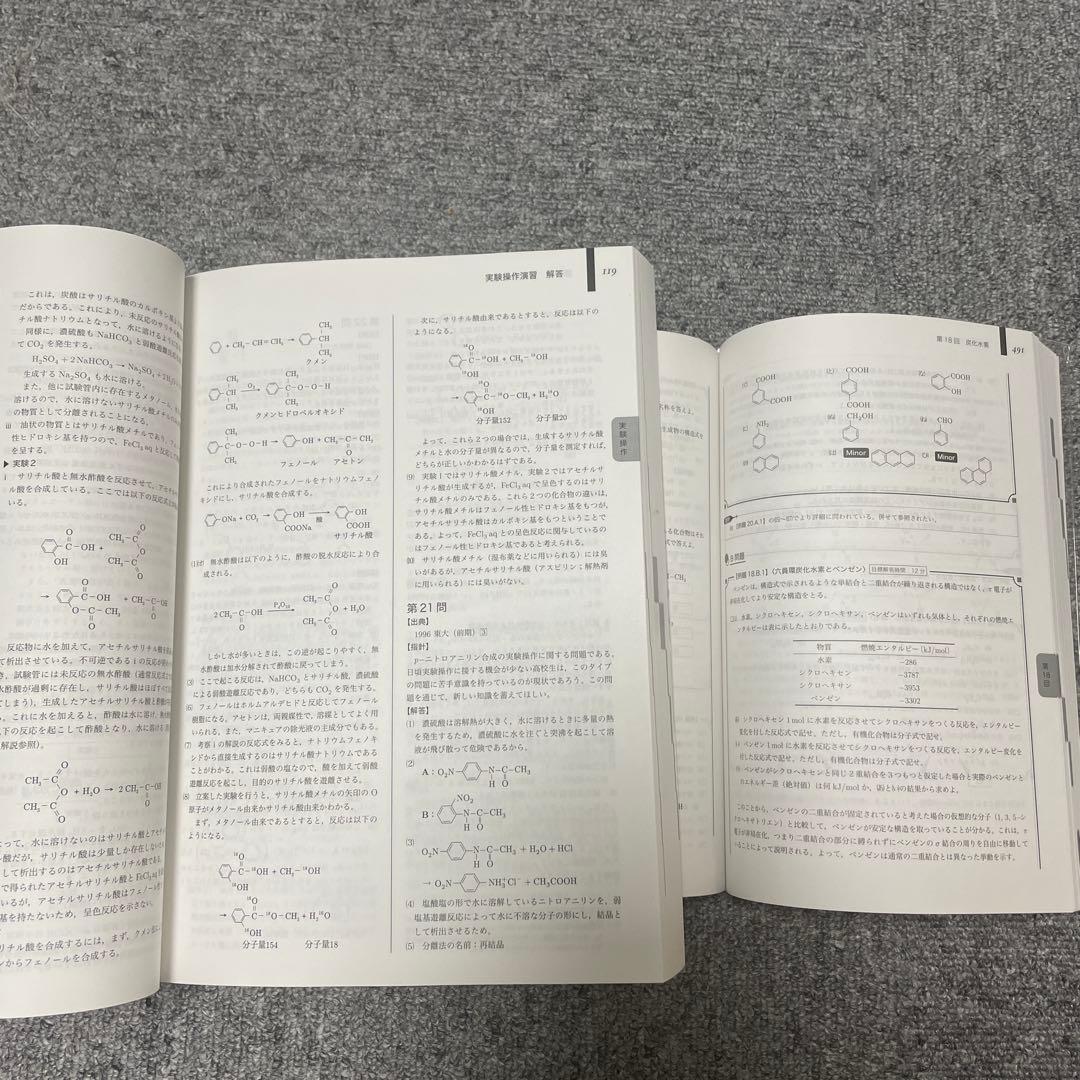 これは，炭酸はサリチル酸のカルボキシ基よ
だからである．これにより，未反応のサリチ
チル酸ナトリウムとなって，水に溶けるように
同様に，濃硫酸も NaHCO₃ と弱酸遊離反応
て CO₂ を発生する．
H₂SO₄ + 2 NaHCO₃ → Na₂SO₄ + 2 H₂
生成する Na₂SO₄ も水に溶ける．
また，他に試験管内に存在するメタノール，
溶けるので，水に溶けないサリチル酸メチル
の物質として分離されることになる．
ⅲ 油状の物質とはサリチル酸メチルであり，フェ
性ヒドロキシ基を持つので，FeCl₃ aq と反応し
を呈する．
▶ 実験2
ⅰ サリチル酸と無水酢酸を反応させて，アセチル
ル酸を合成している．ここでは以下の反応式
いる．
反応物に水を加えて，アセチルサリチル酸
て析出させている．不可逆である ⅰ の反応が
き，試験管には未反応の無水酢酸（通常反応
水酢酸が過剰に存在し，サリチル酸はほぼすべて
てしまう），生成したアセチルサリチル酸と酢酸が
る．これに水を加えると，酢酸は水に溶け，
下の反応を起こして酢酸となり，水に溶ける
解説参照）．
CH₃ + H₂O → 2 CH₃−C−OH
って，水に溶けないのはサリチル酸とアセチ
酸だが，サリチル酸は少量しか存在しない
して析出するのはアセチルサリチル酸である．
で得られたアセチルサリチル酸と FeCl₃ aq
いるが，アセチルサリチル酸はフェノール性
基を持たないため，呈色反応を示さない．
リチル酸を合成するには，まず，クメン法
ンからフェノールを合成する．
実験操作演習 解答 119
+ CH₂−CH=CH₂ →
クメン
O₂
クメンヒドロペルオキシド
→ OH + CH₃−C−CH₃
フェノール アセトン
これにより合成されたフェノールをナトリウムフェノ
キシドにし，サリチル酸を合成する．
ONa + CO₂ → OH COONa 酸 → OH COOH
サリチル酸
無水酢酸は以下のように，酢酸の脱水反応により合
成される．
2 CH₃−C−OH P₄O₁₀ → CH₃−C O CH₃−C O + H₂O
しかし水が多いときは，この逆が起こりやすく，無
水酢酸は加水分解されて酢酸に戻ってしまう．
(5) ここで起こる反応は，NaHCO₃ とサリチル酸，濃硫酸
による弱酸遊離反応であり，どちらも CO₂ を発生する．
(6) フェノールはホルムアルデヒドと反応してフェノール
樹脂になる．アセトンは，両親媒性で，溶媒としてよく用
いられる．また，マニキュアの除光液の主成分でもある．
(7) 考察 ⅰ の解説の反応式をみると，ナトリウムフェノキ
シドから直接生成するのはサリチル酸ナトリウムである
ことがわかる．これは弱酸の塩なので，酸を加えて弱酸
遊離反応を起こし，目的のサリチル酸を遊離させる．
(8) 立案した実験を行うと，サリチル酸メチルの矢印の O
原子がメタノール由来かサリチル酸由来かわかる．
まず，メタノール由来であるとすると，反応は以下の
ようになる．
¹⁸O C−¹⁸OH + CH₃−OH ¹⁸OH
→ ¹⁸O C−O−CH₃ + H₂¹⁸O ¹⁸OH
分子量154 分子量18
次に，サリチル酸由来であるとすると，反応は以下の
ようになる．
¹⁸O C−¹⁸OH + CH₃−¹⁸OH ¹⁸OH
→ ¹⁸O C−¹⁸O−CH₃ + H₂¹⁸O ¹⁸OH
分子量152 分子量20
よって，これら２つの場合では，生成するサリチル酸
メチルと水の分子量が異なるので，分子量を測定すれば，
どちらが正しいかわかるはずである．
(9) 実験１ではサリチル酸メチル，実験２ではアセチルサ
リチル酸が生成するが，FeCl₃ aq で呈色するのはサリ
チル酸メチルのみである．これら２つの化合物の違いは，
サリチル酸メチルはフェノール性ヒドロキシ基をもつが，
アセチルサリチル酸はカルボキシ基をもつということで
ある．よって，FeCl₃ aq との呈色反応に関与しているの
はフェノール性ヒドロキシ基であると考えられる．
(10) サリチル酸メチル（湿布薬などに用いられる）には臭
いがあるが，アセチルサリチル酸（アスピリン；解熱剤
に用いられる）には臭いがない．
第21問
【出典】
1996 東大（前期）③
【指針】
p−ニトロアニリン合成の実験操作に関する問題である．
日頃実験操作に接する機会が少ない高校生は，このタイプ
の問題に苦手意識を持っているのが現状であろう．この問
題を通じて，新しい知識を蓄えてほしい．
【解答】
(1) 濃硫酸は溶解熱が大きく，水に溶けるときに多量の熱
を発生するため，濃硫酸に水を注ぐと突沸を起こして溶
液が飛び散って危険であるから．
(2)
A：O₂N− −N−C−CH₃ H O
B： NO₂ −N−C−CH₃ H O
(3)
O₂N− −N−C−CH₃ + H₂O + HCl H O
→ O₂N− −NH₃⁺Cl⁻ + CH₃COOH
(4) 塩酸塩の形で水に溶解しているニトロアニリンを，弱
塩基遊離反応によって水に不溶な分子の形にし，結晶と
して析出させるため．
(5) 分離法の名前：再結晶
実験操作
第18回 炭化水素 491
名称を答えよ．
生成物の構造式を
る化合物はそれ
式で答えよ．
COOH COOH
COOH COOH
COOH OH
NH₂ CH₂OH CHO
Minor Minor
【例題 20.A.1】の(85)～(87)でより詳細に問われている．併せて参照されたい．
B問題
【例題 18.B.1】〈六員環炭化水素とベンゼン〉 目標解答時間 12分
ベンゼンは，構造式で示されるような単結合と二重結合が繰り返される構造ではなく，π電子が
非局在化してより安定な構造をとる．
水素，シクロヘキセン，シクロヘキサン，ベンゼンはいずれも気体とし，それぞれの燃焼エ
ンタルピーは表に示したとおりである．
物質 燃焼エンタルピー (kJ/mol)
水素 −286
シクロヘキセン −3787
シクロヘキサン −3953
ベンゼン −3302
シクロヘキセン 1 mol に水素を反応させてシクロヘキサンをつくる反応を，エンタルピー
変化を付した反応式で記せ．ただし，有機化合物は分子式で記せ．
ベンゼン 1 mol に水素を反応させてシクロヘキサンをつくる反応を，エンタルピー変化を
付した反応式で記せ．ただし，有機化合物は分子式で記せ．
ベンゼンがシクロヘキセンと同じ２重結合を３つもつと仮定した場合と実際のベンゼンと
のエネルギー差（絶対値）は何 kJ/mol か，
の結果から求めよ．
このことから，ベンゼンの二重結合が固定されていると考えた場合の仮想的な分子（1, 3, 5−シ
クロヘキサトリエン）と比較して，ベンゼンが安定な構造を取っていることが分かる．これは，π
電子が非局在化，つまり二重結合の部分に縛られずにベンゼンのσ結合の周りを自由に移動して
いることによって説明される．よって，ベンゼンは通常の二重結合とは異なった挙動を示す．
第18回